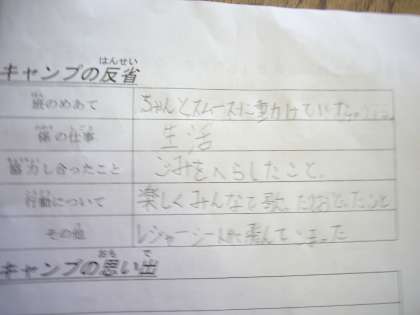 はんせい
キャンプの反省
はん
班のめあて ちゃんとスムーズに動けていた。
係の仕事 生活
協力し合ったこと ごみをへらしたこと。
行動について 楽しくみんなで歌ったりおどったこと
その他 レジャーシートが飛んでいまった
おも で
キャンプの思い出